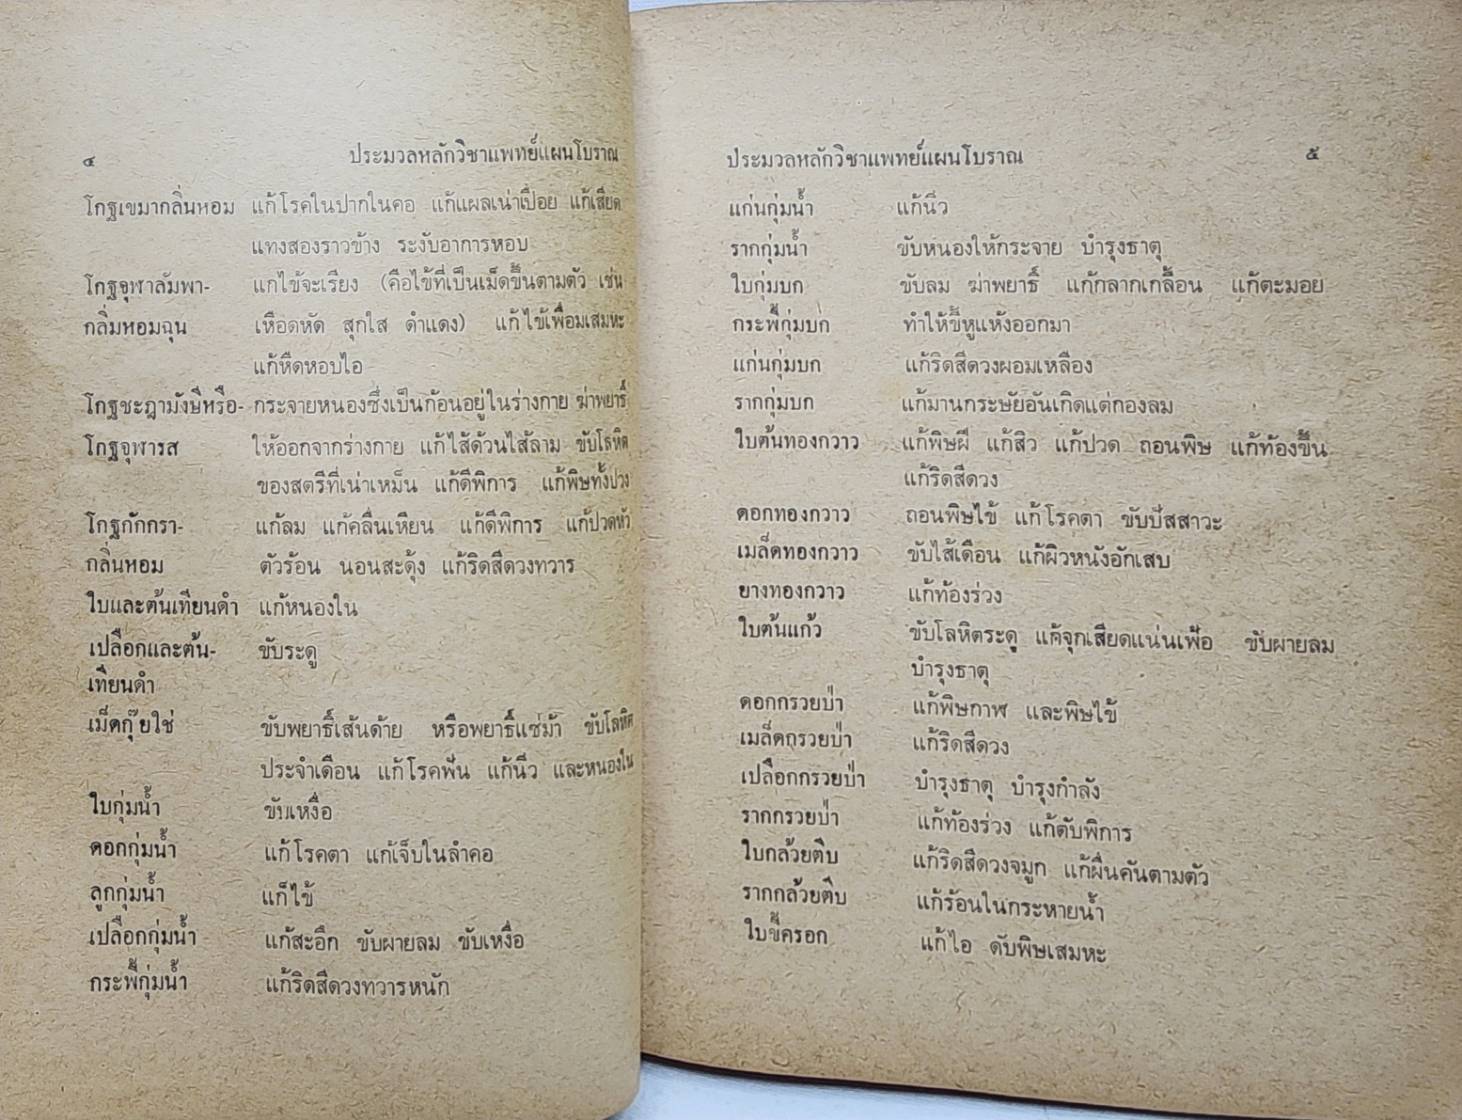 ๔ ประมวลหลักวิชาแพทย์แผนโบราณ
โกฐเขมากลิ่นหอม แก้โรคในปากในคอ แก้แผลเน่าเปื่อย แก้เสียด
แทงสองราวข้าง ระงับอาการหอบ
โกฐจุฬาลัมพา- แกไข้จะเรียง (คือไข้ที่เป็นเม็ดขึ้นตามตัว เช่น
กลิ่มหอมฉุน เหือดหัด สุกใส ดำแดง) แก้ไข้เพื่อมเสมหะ
แก้หืดหอบไอ
โกฐชะฎามังษีหรือ- กระจายหนองซึ่งเป็นก้อนอยู่ในร่างกาย ฆ่าพยาธิ์
โกฐจุฬารส ให้ออกจากร่างกาย แก้ไส้ด้วนไส้ลาม ขับโลหิต
ของสตรีที่เน่าเหม็น แก้ดีพิการ แก้พิษทั้งปวง
โกฐกักกรา- แก้ลม แก้คลื่นเหียน แก้ดีพิการ แก้ปวดหัว
กลิ่นหอม ตัวร้อน นอนสะดุ้ง แก้ริดสีดวงทวาร
ใบและต้นเทียนดำ แก้หนองใน
เปลือกและต้น- ขับระดู
เทียนดำ
เม็ดกุ๊ยใช่ ขับพยาธิ์เส้นด้าย หรือพยาธิ์แซ่ม้า ขับโลหิต
ประจำเดือน แก้โรคฟัน แก้นิ่ว และหนองใน
ใบกุ่มน้ำ ขับเหงื่อ
ดอกกุ่มน้ำ แก้โรคตา แก้เจ็บในลำคอ
ลูกกุ่มน้ำ แก้ไข้
เปลือกกุ่มน้ำ แก้สะอึก ขับผายลม ขับเหงื่อ
กระพี้กุ่มน้ำ แก้ริดสีดวงทวารหนัก
ประมวลหลักวิชาแพทย์แผนโบราณ ๕
แก่นกุ่มน้ำ แก้นิ่ว
รากกุ่มน้ำ ขับหนองให้กระจาย บำรุงธาตุ
ใบกุ่มบก ขับลม ฆ่าพยาธิ์ แก้กลากเกลื้อน แก้ตะมอย
กระพี้กุ่มบก ทำให้ขี้หูแห้งออกมา
แก่นกุ่มบก แก้ริดสีดวงผอมเหลือง
รากกุ่มบก แก้มานกระษัยอันเกิดแต่กองลม
ใบต้นทองกวาว แก้พิษฝี แก้สิว แก้ปวด ถอนพิษ แก้ท้องขึ้น
แก้ริดสีดวง
ดอกทองกวาว ถอนพิษไข้ แก้โรคตา ขับปัสสาวะ
เมล็ดทองกวาว ขับไส้เดือน แก้ผิวหนังอักเสบ
ยางทองกวาว แก้ท้องร่วง
ใบต้นแก้ว ขับโลหิตระดู แค้จุกเสียดแน่นเฟ้อ ขับผายลม
บำรุงธาตุ
ดอกกรวยป่า แก้พิษกาฬ และพิษไข้
เมล็ดกรวยป่า แก้ริดสีดวง
เปลือกกรวยป่า บำรุงธาตุ บำรุงกำลัง
รากกรวยป่า แก้ท้องร่วง แก้ตับพิการ
ใบกล้วยตีบ แก้ริดสีดวงจมูก แก้ผื่นคันตามตัว
รากกล้วยตีบ แก้ร้อนในกระหายน้ำ
ใบขี้ครอก แก้ไอ ดับพิษเสมหะ